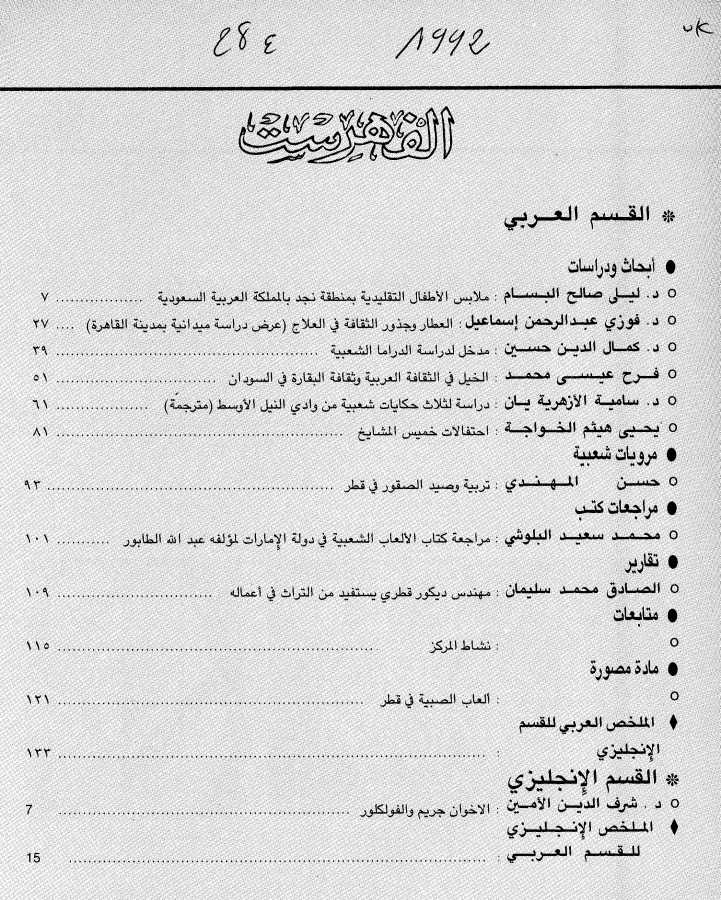 1992
الفهرست
❊ القسم العربي
● أبحاث ودراسات
○ د. ليلى صالح البسام : ملابس الأطفال التقليدية بمنطقة نجد بالمملكة العربية السعودية .................. ٧
○ د. فوزي عبدالرحمن إسماعيل : العطار وجذور الثقافة في العلاج (عرض دراسة ميدانية بمدينة القاهرة) .... ٢٧
○ د. كمال الدين حسين : مدخل لدراسة الدراما الشعبية .................. ٣٩
○ فرح عيسى محمد : الخيل في الثقافة العربية وثقافة البقارة في السودان .................. ٥١
○ د. سامية الأزهرية يان : دراسة لثلاث حكايات شعبية من وادي النيل الأوسط (مترجمّة) .................. ٦١
○ يحيى هيثم الخواجة : احتفالات خميس المشايخ .................. ٨١
● مرويات شعبية
○ حسن المهندي : تربية وصيد الصقور في قطر .................. ٩٣
● مراجعات كتب
○ محمد سعيد البلوشي : مراجعة كتاب الألعاب الشعبية في دولة الإمارات لمؤلفه عبد الله الطابور ........... ١٠١
● تقارير
○ الصادق محمد سليمان : مهندس ديكور قطري يستفيد من التراث في أعماله .................. ١٠٩
● متابعات
○ : نشاط المركز .................. ١١٥
● مادة مصورة
○ : ألعاب الصبية في قطر .................. ١٢١
♦ الملخص العربي للقسم
الإنجليزي : .................. ١٣٣
❊ القسم الإنجليزي
○ د. شرف الدين الأمين : الاخوان جريم والفولكلور .................. 7
♦ الملخص الإنجليزي
للقسم العربي : .................. 15